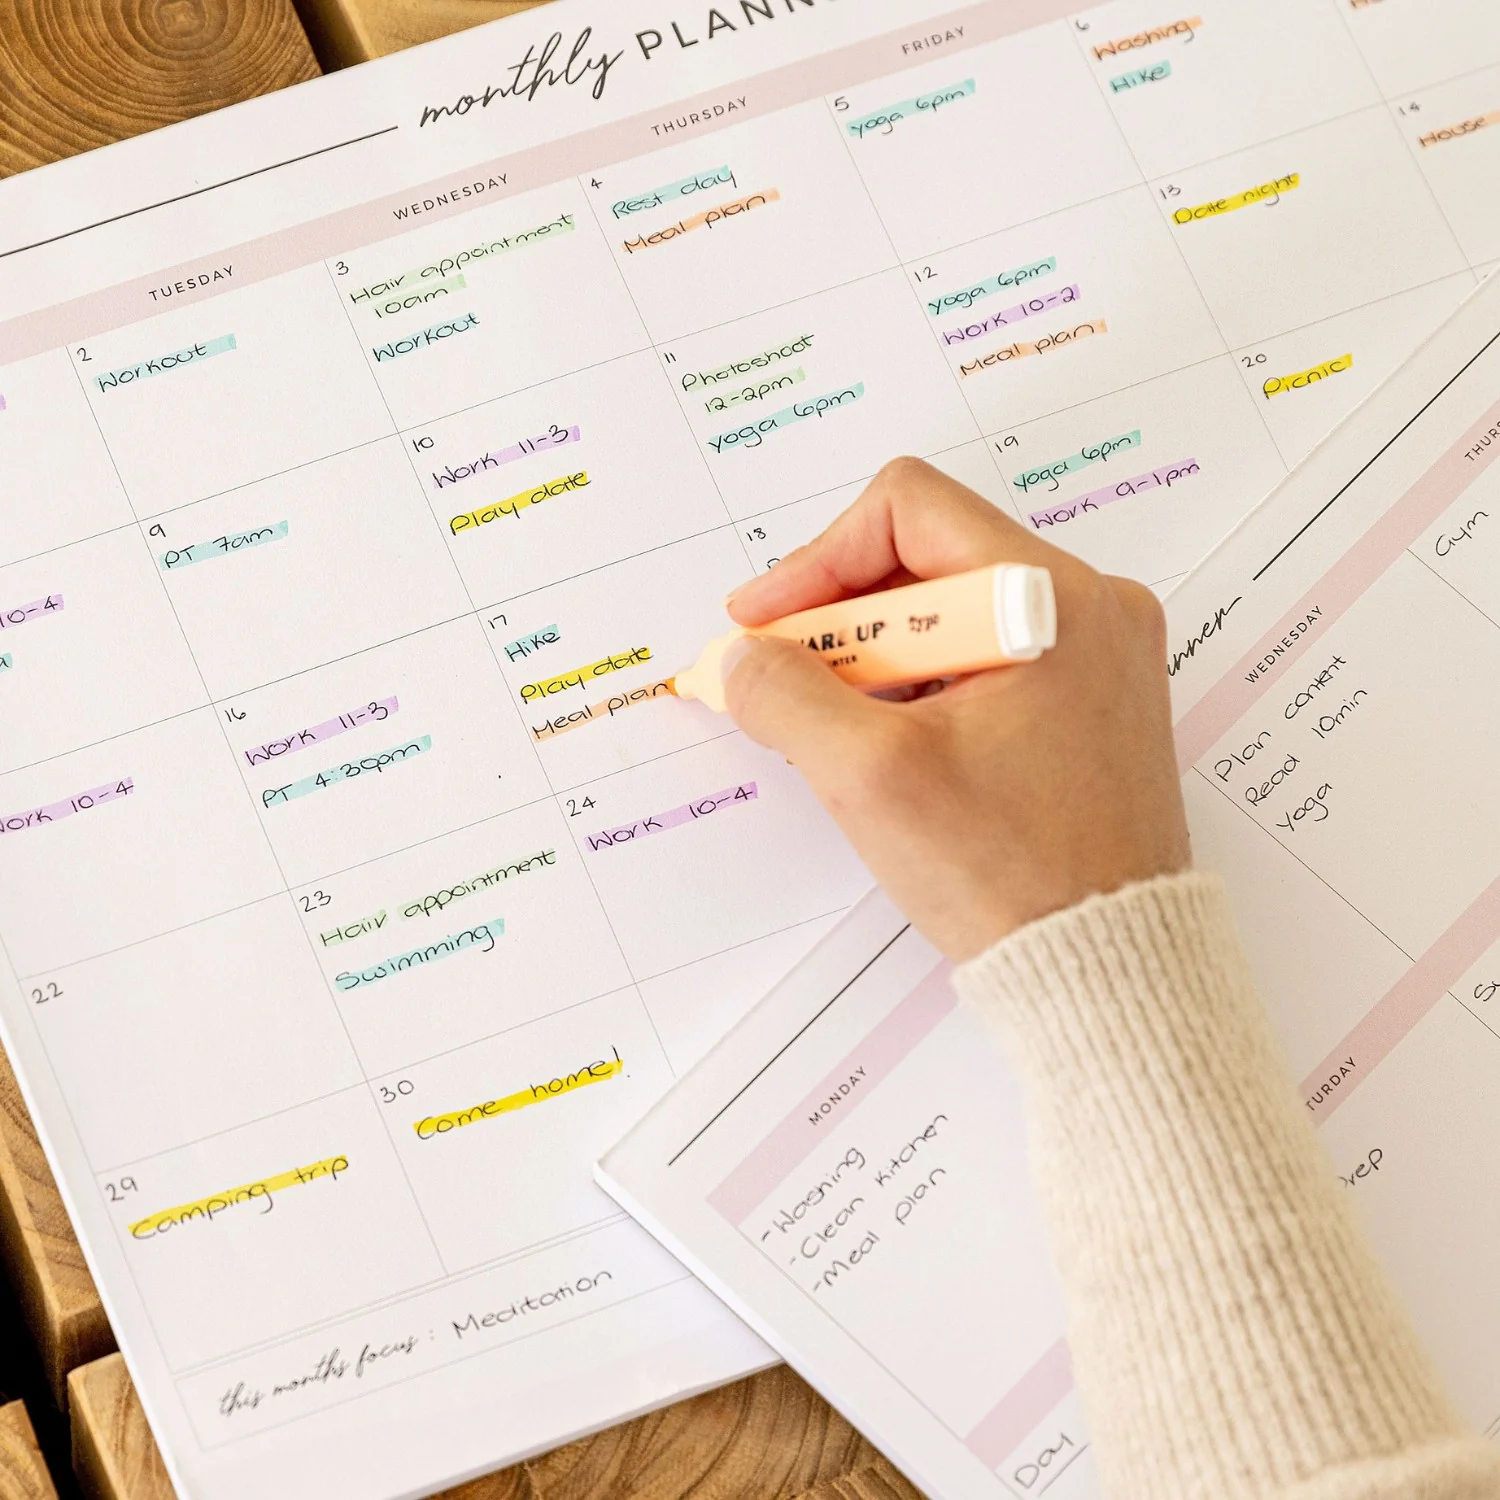 monthly PLANN
TUESDAY
WEDNESDAY
THURSDAY
FRIDAY
2
Workout
3
Hair appointment
10am
Workout
4
Rest day
Meal plan
5
yoga 6pm
6
Washing
Hike
10-4
9
PT 7am
10
Work 11-3
Play date
11
Photoshoot
12-2pm
yoga 6pm
12
yoga 6pm
Work 10-2
Meal plan
13
Date night
14
House
Work 10-4
16
Work 11-3
PT 4:30pm
17
Hike
Play date
Meal plan
18
19
yoga 6pm
Work 9-1pm
20
Picnic
22
23
Hair appointment
Swimming
24
Work 10-4
29
Camping trip
30
Come home!
this months focus : Meditation
UP type
nner
MONDAY
- Washing
- Clean kitchen
- Meal plan
WEDNESDAY
Plan content
Read 10min
Yoga
THURS
Gym
TURDAY
rep
Day